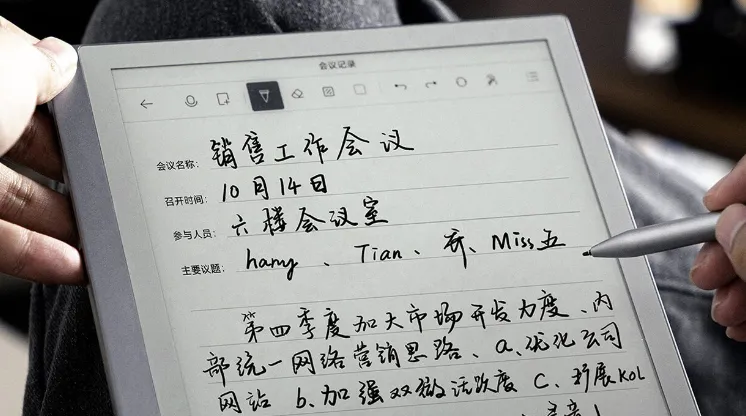 会议记录
会议名称： 销售工作会议
召开时间： 10月14日
参与人员： 六楼会议室
主要议题： hamy、Tian、乔、Miss五
第四季度加大市场开发力度、内
部统一网络营销思路、a、优化公司
网站 b、加强双微活跃度 C、扩展KOL